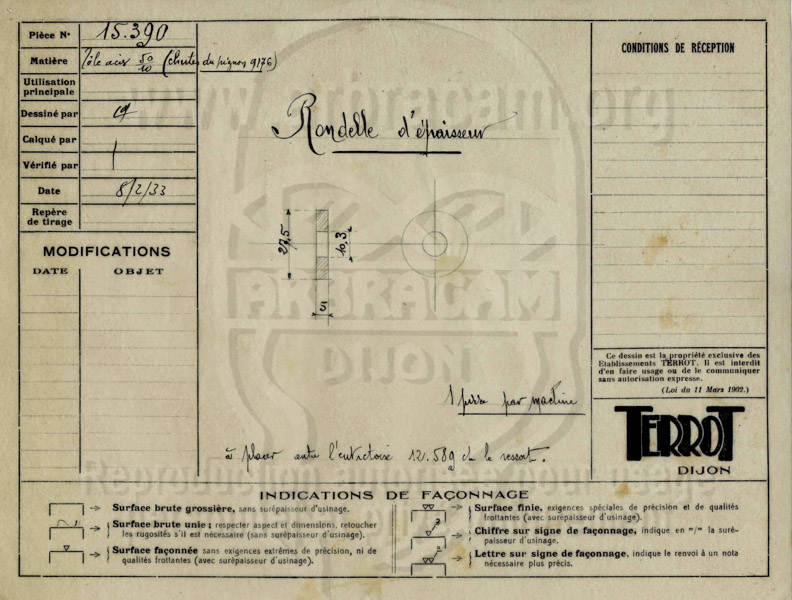 Pièce N° 15.390
Matière Tôle acier 50/10 (chutes du pignon 9176)
Utilisation
principale
Dessiné par
Calqué par
Vérifié par
Date 8/2/33
Repère
de tirage
MODIFICATIONS
DATE OBJET
www.arbracam.org
Rondelle d'épaisseur
27,5
10,3
5
ARBRACAM
DIJON
1 pièce par machine
à placer entre l'entretoise 12.589 et le ressort.
CONDITIONS DE RÉCEPTION
Ce dessin est la propriété exclusive des
Etablissements TERROT. Il est interdit
d'en faire usage ou de le communiquer
sans autorisation expresse.
(Loi du 11 Mars 1902.)
TERROT
DIJON
INDICATIONS DE FAÇONNAGE
Surface brute grossière, sans surépaisseur d'usinage.
Surface brute unie ; respecter aspect et dimensions, retoucher
les rugosités s'il est nécessaire (sans surépaisseur d'usinage).
Surface façonnée sans exigences extrêmes de précision, ni de
qualités frottantes (avec surépaisseur d'usinage).
Surface finie, exigences spéciales de précision et de qualités
frottantes (avec surépaisseur d'usinage).
Chiffre sur signe de façonnage, indique en "/" la suré-
paisseur d'usinage.
Lettre sur signe de façonnage, indique le renvoi à un nota
nécessaire plus précis.